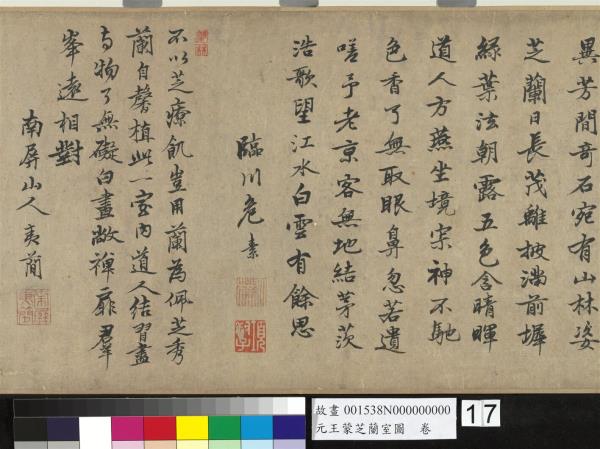 異芳間奇石宛有山林姿
芝蘭日長茂離披滿前墀
綠葉泫朝露五色含晴暉
道人方燕坐境寂神不馳
色香了無取眼鼻忽若遺
嗟予老京客無地結茅茨
浩歌望江水白雲有餘思
臨川危素
不以芝療飢豈用蘭為佩芝秀
蘭自馨植此一室內道人結習盡
與物了無礙白晝敞禪扉群
峯遠相對
南屏山人夷簡
故畫 001538N000000000
元王蒙芝蘭室圖 卷
17